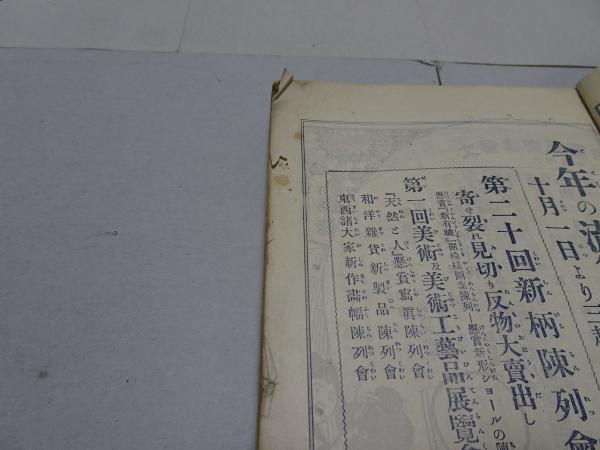 今年の流
十月一日より三越
第二十回新柄陳列會
寄せ裂れ見切り反物大賣出し
懸賞「新有職」裾模樣圖案陳列―懸賞新形ショールの陳
第一回美術及美術工藝品展覽會
『天然と人』懸賞寫眞陳列會
和洋雜貨新製品陳列會
東西諸大家新作畫幅陳列會